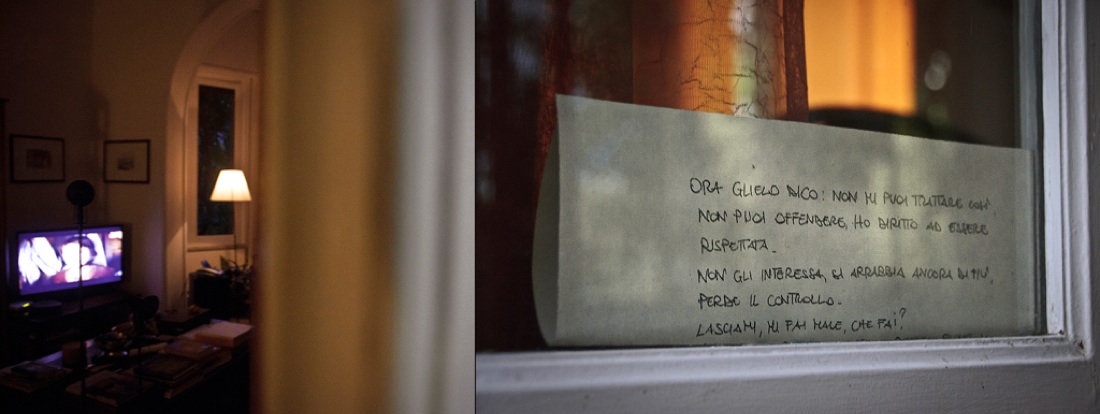 ORA GLIELO DICO: NON MI PUOI TRATTARE COSÌ,
NON PUOI OFFENDERE, HO DIRITTO AD ESSERE
RISPETTATA.
NON GLI INTERESSA, SI ARRABBIA ANCORA DI PIÙ,
PERDE IL CONTROLLO.
LASCIAMI, MI FAI MALE, CHE FAI?